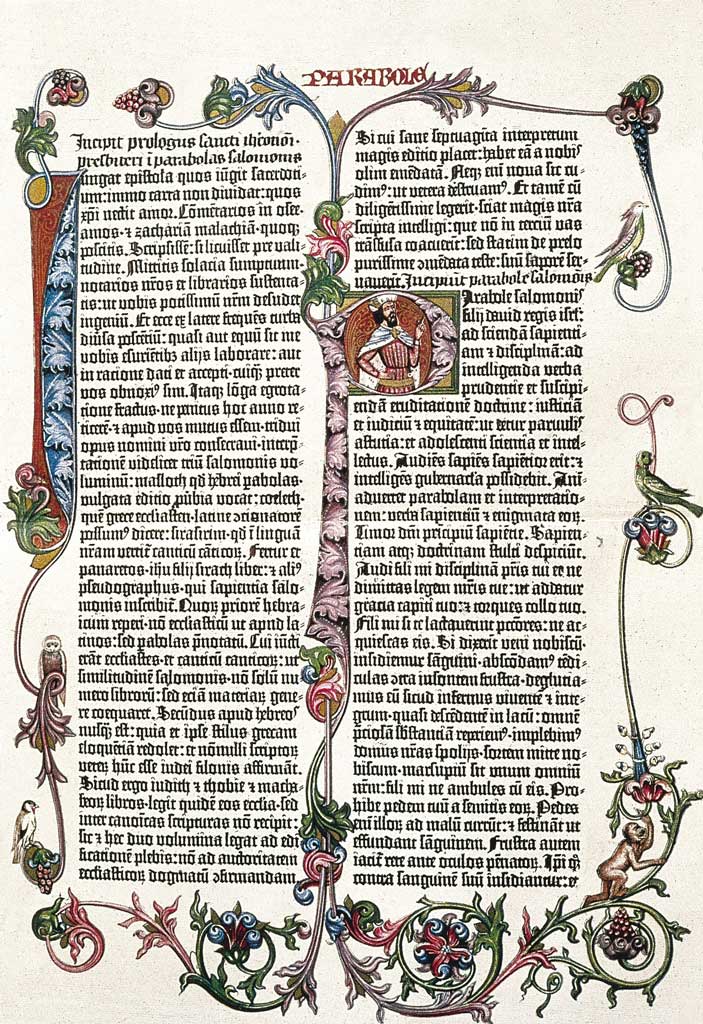 PARABOLE
Incipit prologus sancti iheronimi
presbiteri ī parabolas salomonis
Iungat epistola quos iūgit sacerdoti-
um: immo carta non dividat: quos
xp̄i nectit amor. Cōmētarios in osee.
amos. ⁊ zachariā malachiā. quoqꝫ
poscitis. Scripsissē: si licuisset pre vali-
tudine. Mittitis solacia sumptuum.
notarios nr̄os et librarios sustenta-
tis: ut vobis potissimū nr̄m desudet
ingeniū. Et ecce ex latere frequēs turba
diūsa poscētiū: quasi aut equū sit me
vobis esuriētibꝫ alijs laborare: aut
in ratione dati et accepti. cuiqꝫ preter
vos obnoxiꝰ sim. Itaqꝫ lōga egrota-
tione fractus. ne penitus hoc anno re-
ticerē. ⁊ apud vos mutus essem. tridui
opus nomini vr̄o consecraui. interp̄-
tationē videlicet triū salomonis vo-
luminū: masloth qd̄ hebrei pabolas.
vulgata editio ꝓūbia vocat: coeleth.
quē grece ecclesiasten. latine ↄcionatorē
possumꝰ dicere: sirasirim. qd̄ ī linguā
nr̄am vertit̄ canticū cāticoꝝ. Fertur et
panaretos. ihū filij sirach liber: ⁊ aliꝰ
pseudographus. qui sapientia salo-
monis inscribit̄. Quoꝝ priorē hebra-
icum reperi. nō ecclesiasticū ut apud la-
tinos: sed pabolas p̄notatū. Cui iūcti
erāt ecclesiastes et canticū canticoꝝ: ut
similitudinē salomonis. nō solū nu-
mero librorū: sed etiā materiaꝝ gene-
re coequaret. Secūdus apud hebreos
nusqꝫ est: quia et ipse stilus grecam
eloquētiā redolet: et nōnulli scriptoꝝ
veteꝝ hūc esse iudei filonis affirmāt.
Sicud ergo iudith ⁊ thobie ⁊ macha-
beoꝝ libros. legit quidē eos ecclia. sed
inter canōicas scripturas nō recipit:
sic ⁊ hec duo volumina legat ad edi-
ficationē plebis: nō ad auctoritatem
ecclesiasticoꝝ dogmatū ↄfirmandam.
Si cui sane septuagīta interpretum
magis editio placet: habet eā a nobis
olim emēdatā. Neqꝫ em̄ noua sic cu-
dimꝰ: ut vetera destruamꝰ. Et tamē cū
diligētissime legerit. sciat magis nr̄a
scripta intelligi: que nō in terciū vas
trāsfusa coacuerīt: sed statim de prelo
purissime ↄmēdata teste: suū saporē ser-
uauerīt. Incipiunt parabole salomōis
Parabole salomonis
filij dauid regis isrl̄:
ad sciendā sapienti-
am ⁊ disciplinā: ad
intelligenda verba
prudentie et suscipi-
endā eruditationē doctrine: iusticiā
et iudiciū ⁊ equitatē: ut detur paruulis
astutia: et adolescenti scientia et intel-
lectus. Audiēs sapiēs sapiētior erit: ⁊
intelligēs gubernacla possidebit. Ani-
aduertet parabolam et interpretatio-
nem: verba sapientiū ⁊ enigmata eoꝝ.
Timor dn̄i principiū sapiētie. Sapien-
tiam atqꝫ doctrinam stulti despiciūt.
Audi fili mi disciplinā pr̄is tui et ne
dimittas legem mr̄is tue: ut addatur
gracia capiti tuo: ⁊ torques collo tuo.
Fili mi si te lactauerint pctōres: ne ac-
quiescas eis. Si dixerīt veni nobiscū.
insidiemur sāguini. abscōdamꝰ tēdi-
culas ↄtra insontem frustra. deglutia-
mus eū sicud infernus viuentē ⁊ inte-
grum. quasi descēdētē in lacū: omnē
p̄ciosā sbstantiā reperiemꝰ. implebimꝰ
domus nr̄as spolijs. sortem mitte no-
biscum. marsupiū sit vnum omniū
nr̄m: fili mi ne ambules cū eis. Pro-
hibe pedem tuū a semitis eoꝝ. Pedes
em̄ illoꝝ ad malū currūt: ⁊ festināt ut
effundant sāguinem. Frustra autem
iacit̄ rete ante oculos pēnatoꝝ. Ip̄i qꝫ
contra sanguinē suū insidiantur: et